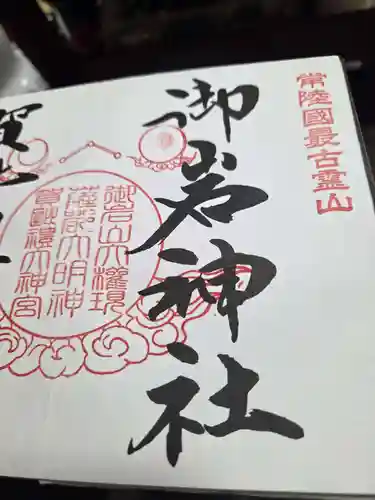 常陸國最古霊山
御岩神社
御岩山大権現
薩都大明神
賀毗禮大神宮
賀